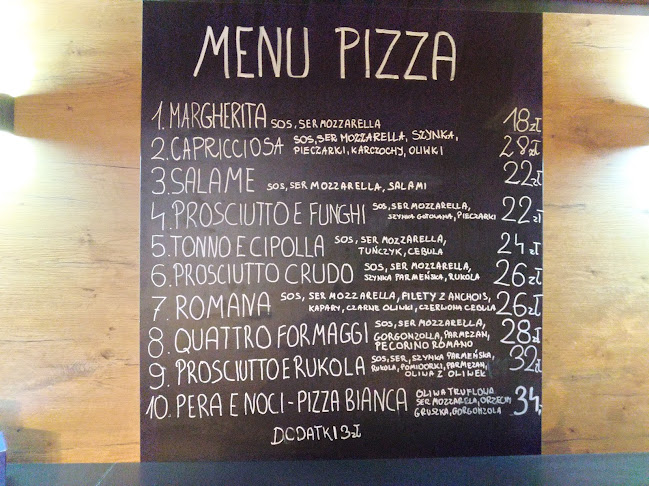 MENU PIZZA
1. MARGHERITA SOS, SER MOZZARELLA 18zł
2. CAPRICCIOSA SOS, SER MOZZARELLA, SZYNKA, 28zł
PIECZARKI, KARCZOCHY, OLIWKI
3. SALAME SOS, SER MOZZARELLA, SALAMI 22zł
4. PROSCIUTTO E FUNGHI SOS, SER MOZZARELLA, 22zł
SZYNKA GOTOWANA, PIECZARKI
5. TONNO E CIPOLLA SOS, SER MOZZARELLA, 24zł
TUŃCZYK, CEBULA
6. PROSCIUTTO CRUDO SOS, SER MOZZARELLA, 26zł
SZYNKA PARMEŃSKA, RUKOLA
7. ROMANA SOS, SER MOZZARELLA, FILETY Z ANCHOIS, 26zł
KAPARY, CZARNE OLIWKI, CZERWONA CEBULA
8. QUATTRO FORMAGGI SOS, SER MOZZARELLA, 28zł
GORGONZOLLA, PARMEZAN,
PECORINO ROMANO
9. PROSCIUTTO E RUKOLA SOS, SER, SZYNKA PARMEŃSKA, 32zł
RUKOLA, POMIDORKI, PARMEZAN,
OLIWA Z OLIWEK
10. PERA E NOCI - PIZZA BIANCA OLIWA TRUFLOWA 34,-
SER MOZZARELA, ORZECHY
GRUSZKA, GORGONZOLA
DODATKI 3zł